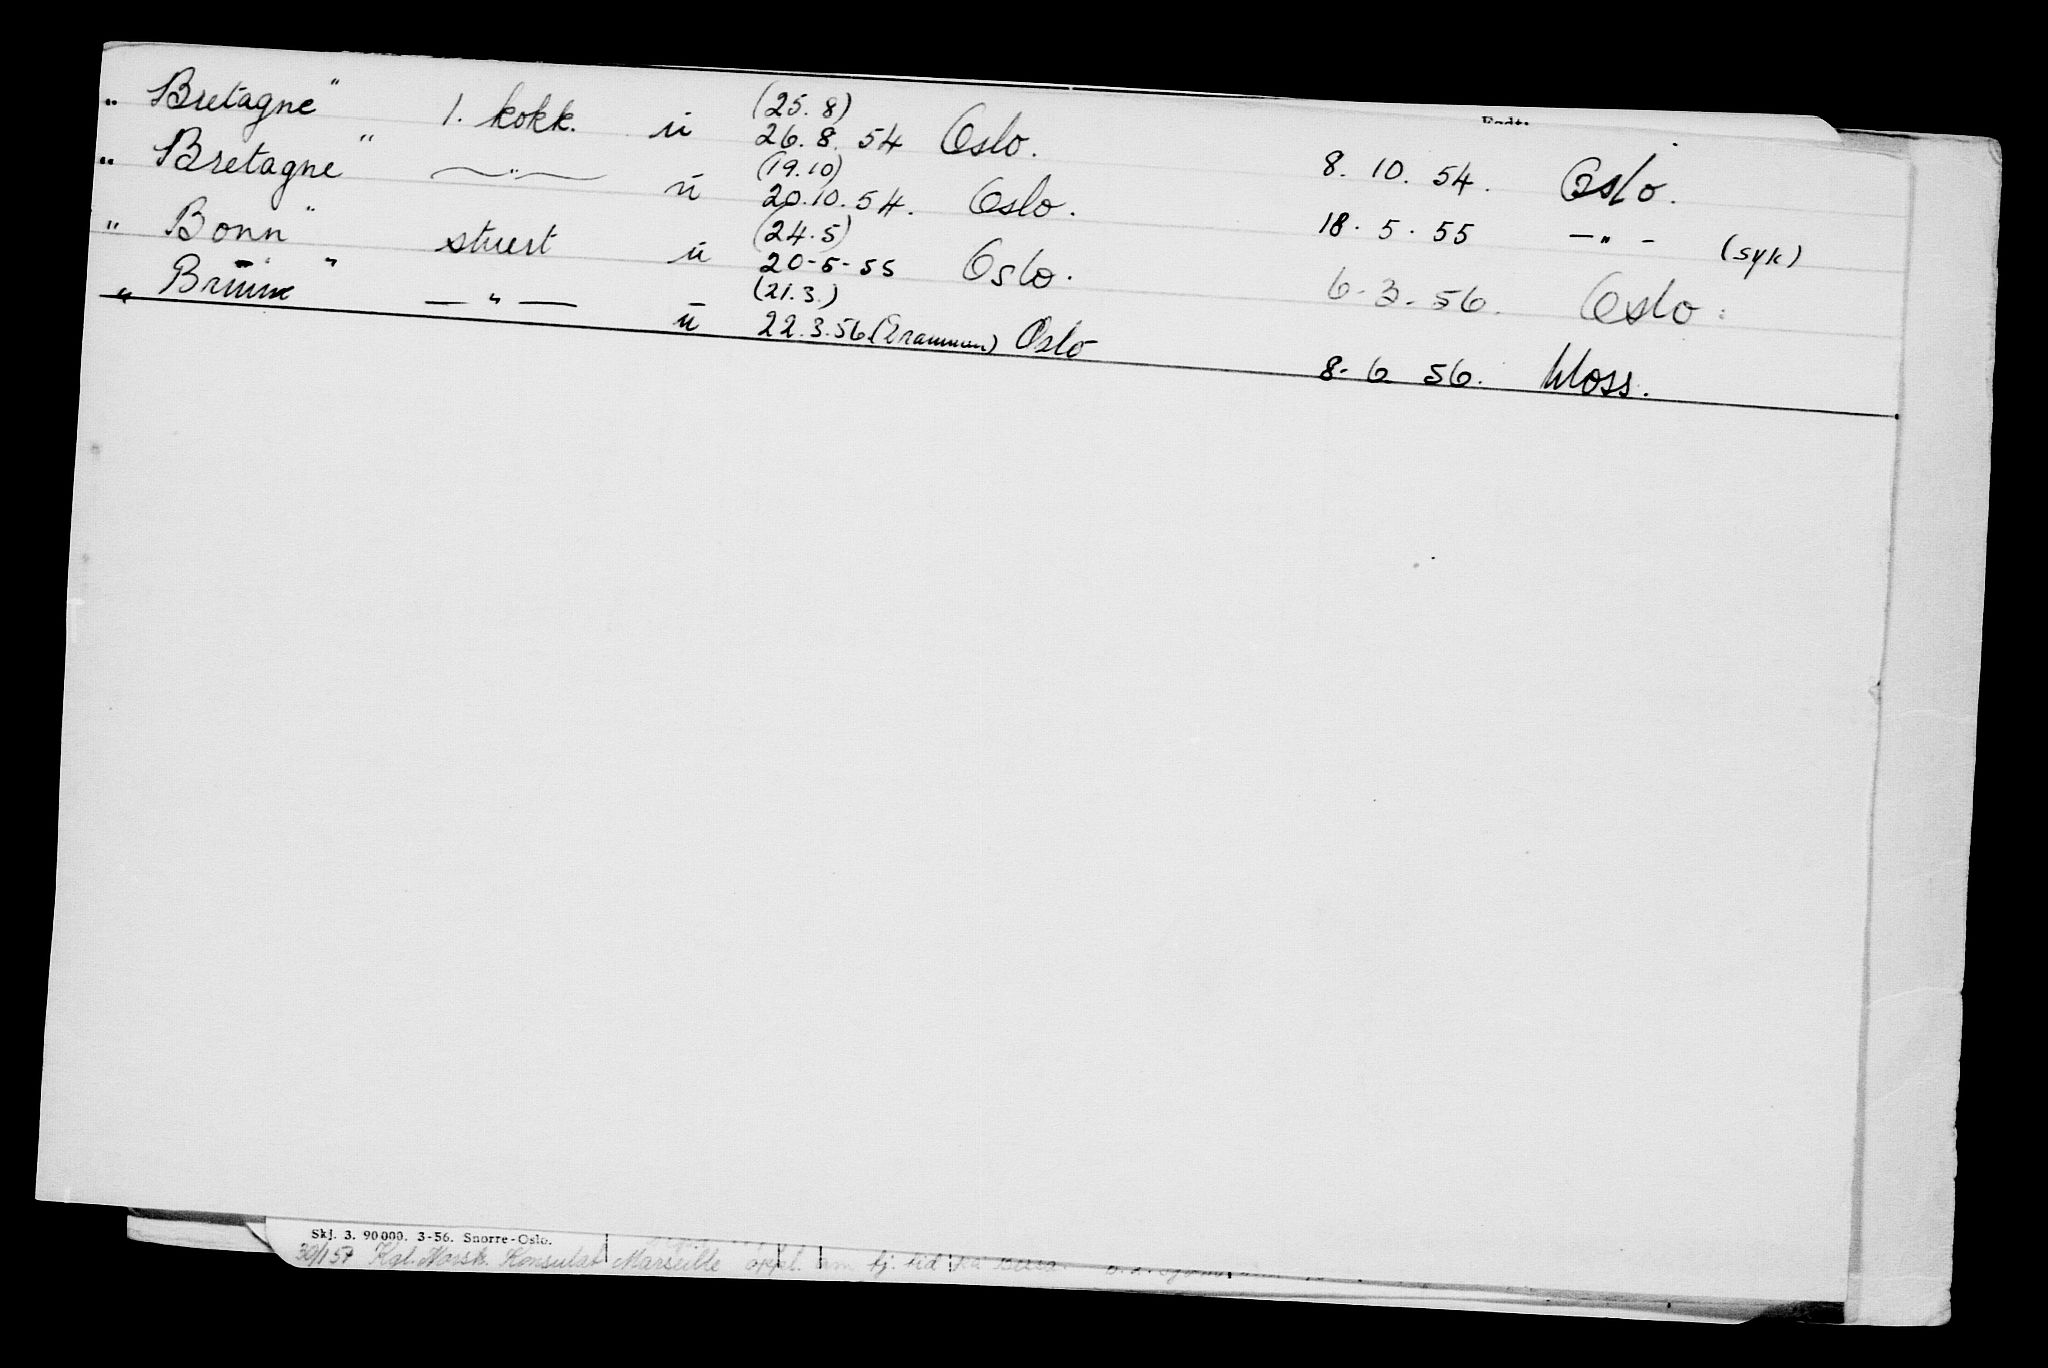 „ Bretagne " 1. kokk. ü (25.8) 26.8.54 Oslo. 8.10.54. Oslo.
„ Bretagne " — " — ü (19.10) 20.10.54. Oslo. 18.5.55 — " — (syk)
„ Bonn " stuert ü (24.5) 20-5-55 Oslo. 6-3-56. Oslo.
„ " — " — ü (21.3.) 22.3.56 Oslo 8-6 56. Moss.
Skj. 3. 90000. 3-56. Snorre-Oslo.
30/1 57 Kgl. Norsk. Konsulat Marseille oppl. om tj. tid på